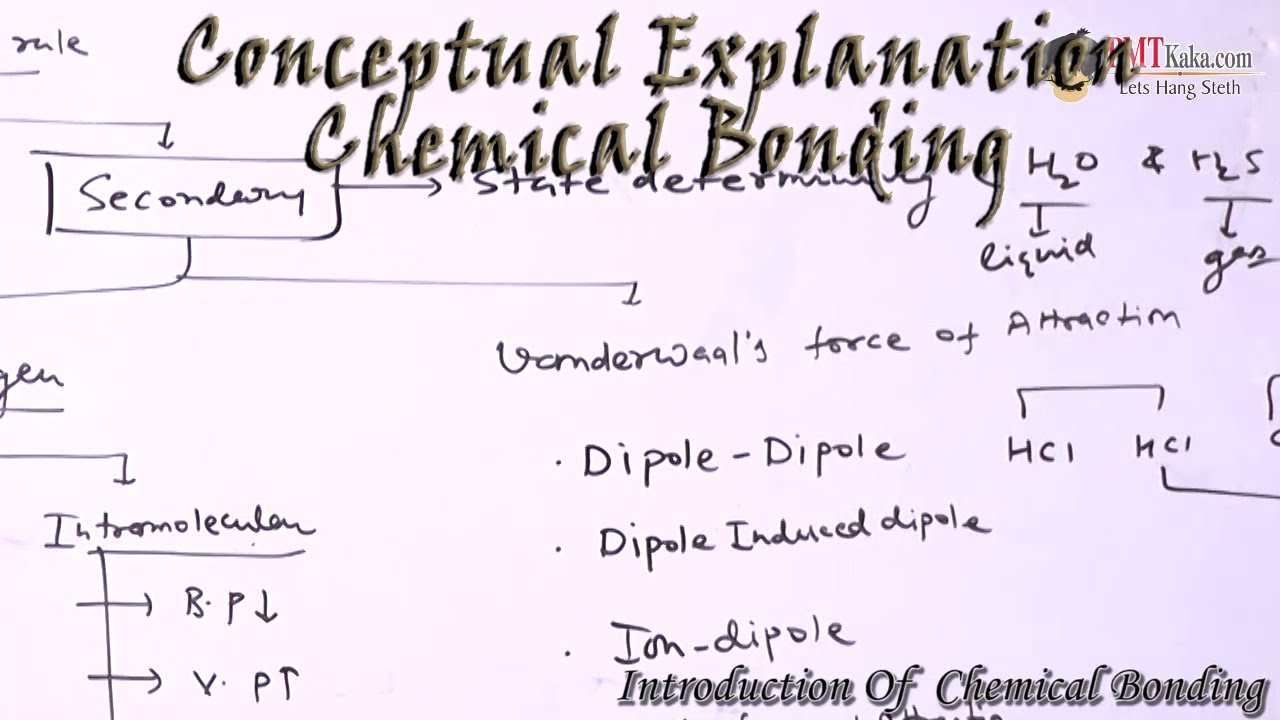 Conceptual Explanation
Chemical Bonding
PMTKaka.com
Lets Hang Steth
rule
Secondary → State determining
H₂O & H₂S
liquid
gas
Vanderwaal's force of Attraction
gen
· Dipole - Dipole
HCl HCl
Intramolecular
· Dipole Induced dipole
→ B.P↓
· Ion-dipole
→ V.P↑
Introduction Of Chemical Bonding